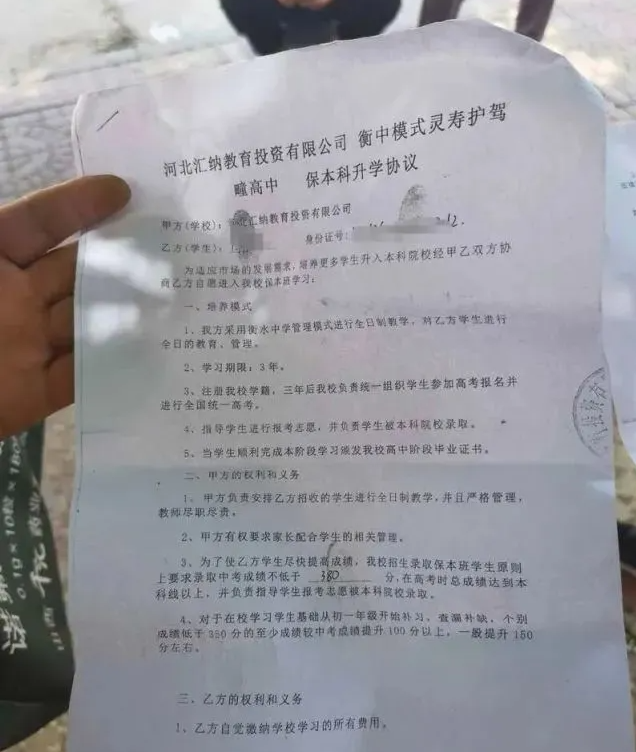 河北汇纳教育投资有限公司 衡中模式灵寿护驾
疃高中 保本科升学协议
甲方(学校): 汇纳教育投资有限公司
乙方(学生): 身份证号:
为适应市场的发展需求,培养更多学生升入本科院校经甲乙双方协
商乙方自愿进入我校保本班学习:
一、培养模式
1、我方采用衡水中学管理模式进行全日制教学,对乙方学生进行
全日的教育、管理。
2、学习期限:3年。
3、注册我校学籍,三年后我校负责统一组织学生参加高考报名并
进行全国统一高考。
4、指导学生进行报考志愿,并负责学生被本科院校录取。
5、当学生顺利完成本阶段学习颁发我校高中阶段毕业证书。
二、甲方的权利和义务
1、甲方负责安排乙方招收的学生进行全日制教学,并且严格管理,
教师尽职尽责。
2、甲方有权要求家长配合学生的相关管理。
3、为了使乙方学生尽快提高成绩,我校招生录取保本班学生原则
上要求录取中考成绩不低于 380 分,在高考时总成绩达到本
科线以上,并负责指导学生报考志愿被本科院校录取。
4、对于在校学习学生基础从初一年级开始补习、查漏补缺,个别
成绩低于380分的至少成绩较中考成绩提升100分以上,一般提升150
分左右。
三、乙方的权利和义务
1、乙方自觉缴纳学校学习的所有费用。
0.1g×10粒×180
山西
药业